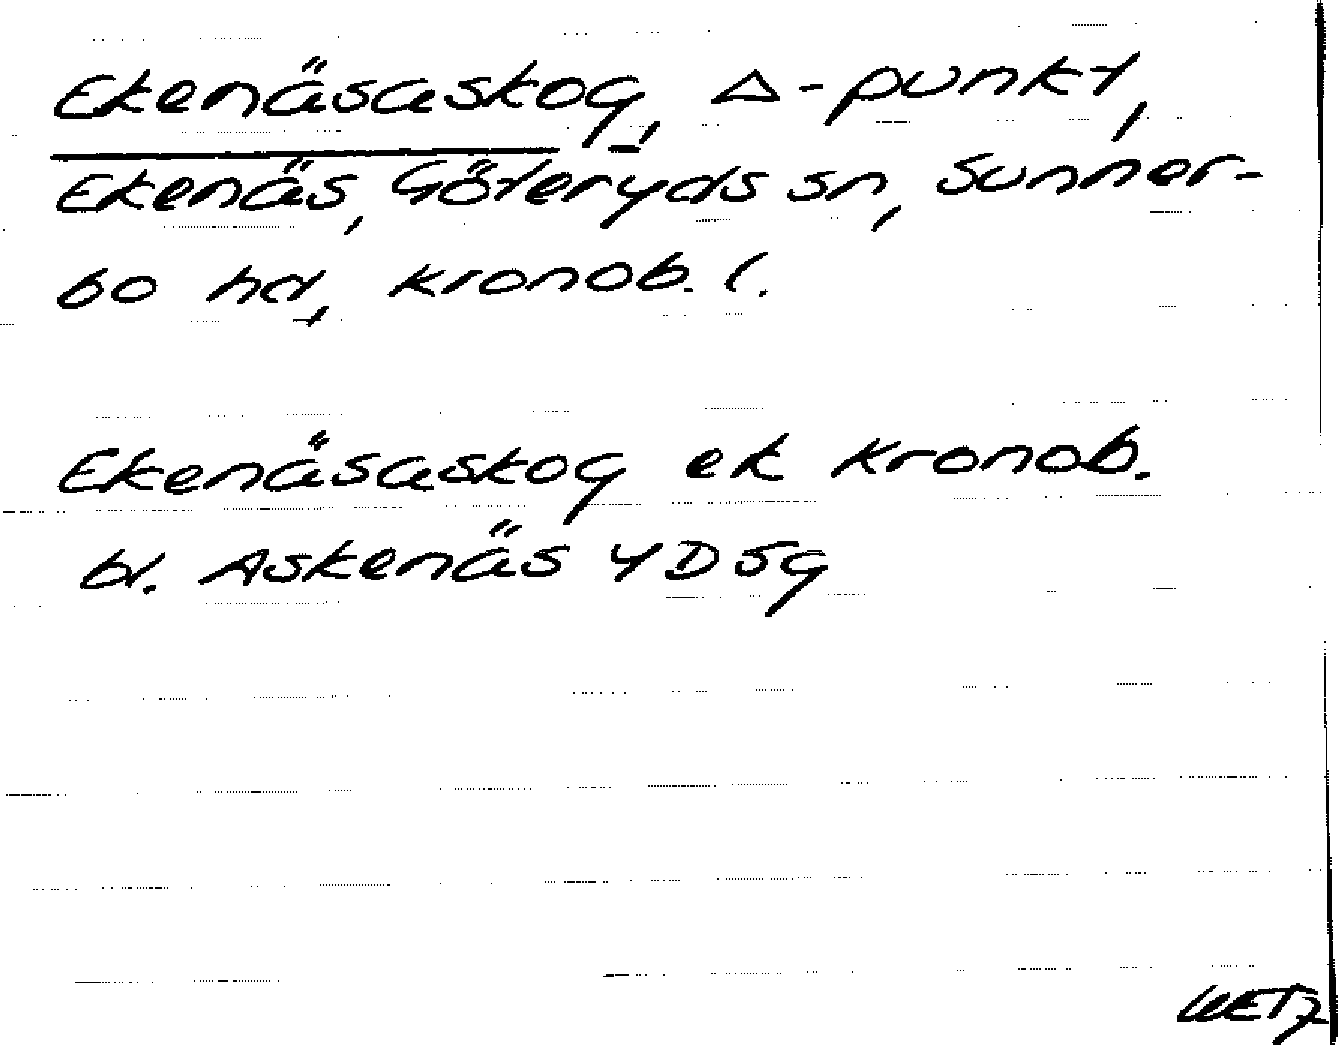 Ekenäsaskog, Δ-punkt,
Ekenäs, Göteryds sn, Sunner-
bo hd, Kronob. l.
Ekenäsaskog ek Kronob.
bl. Askenäs 4D5g